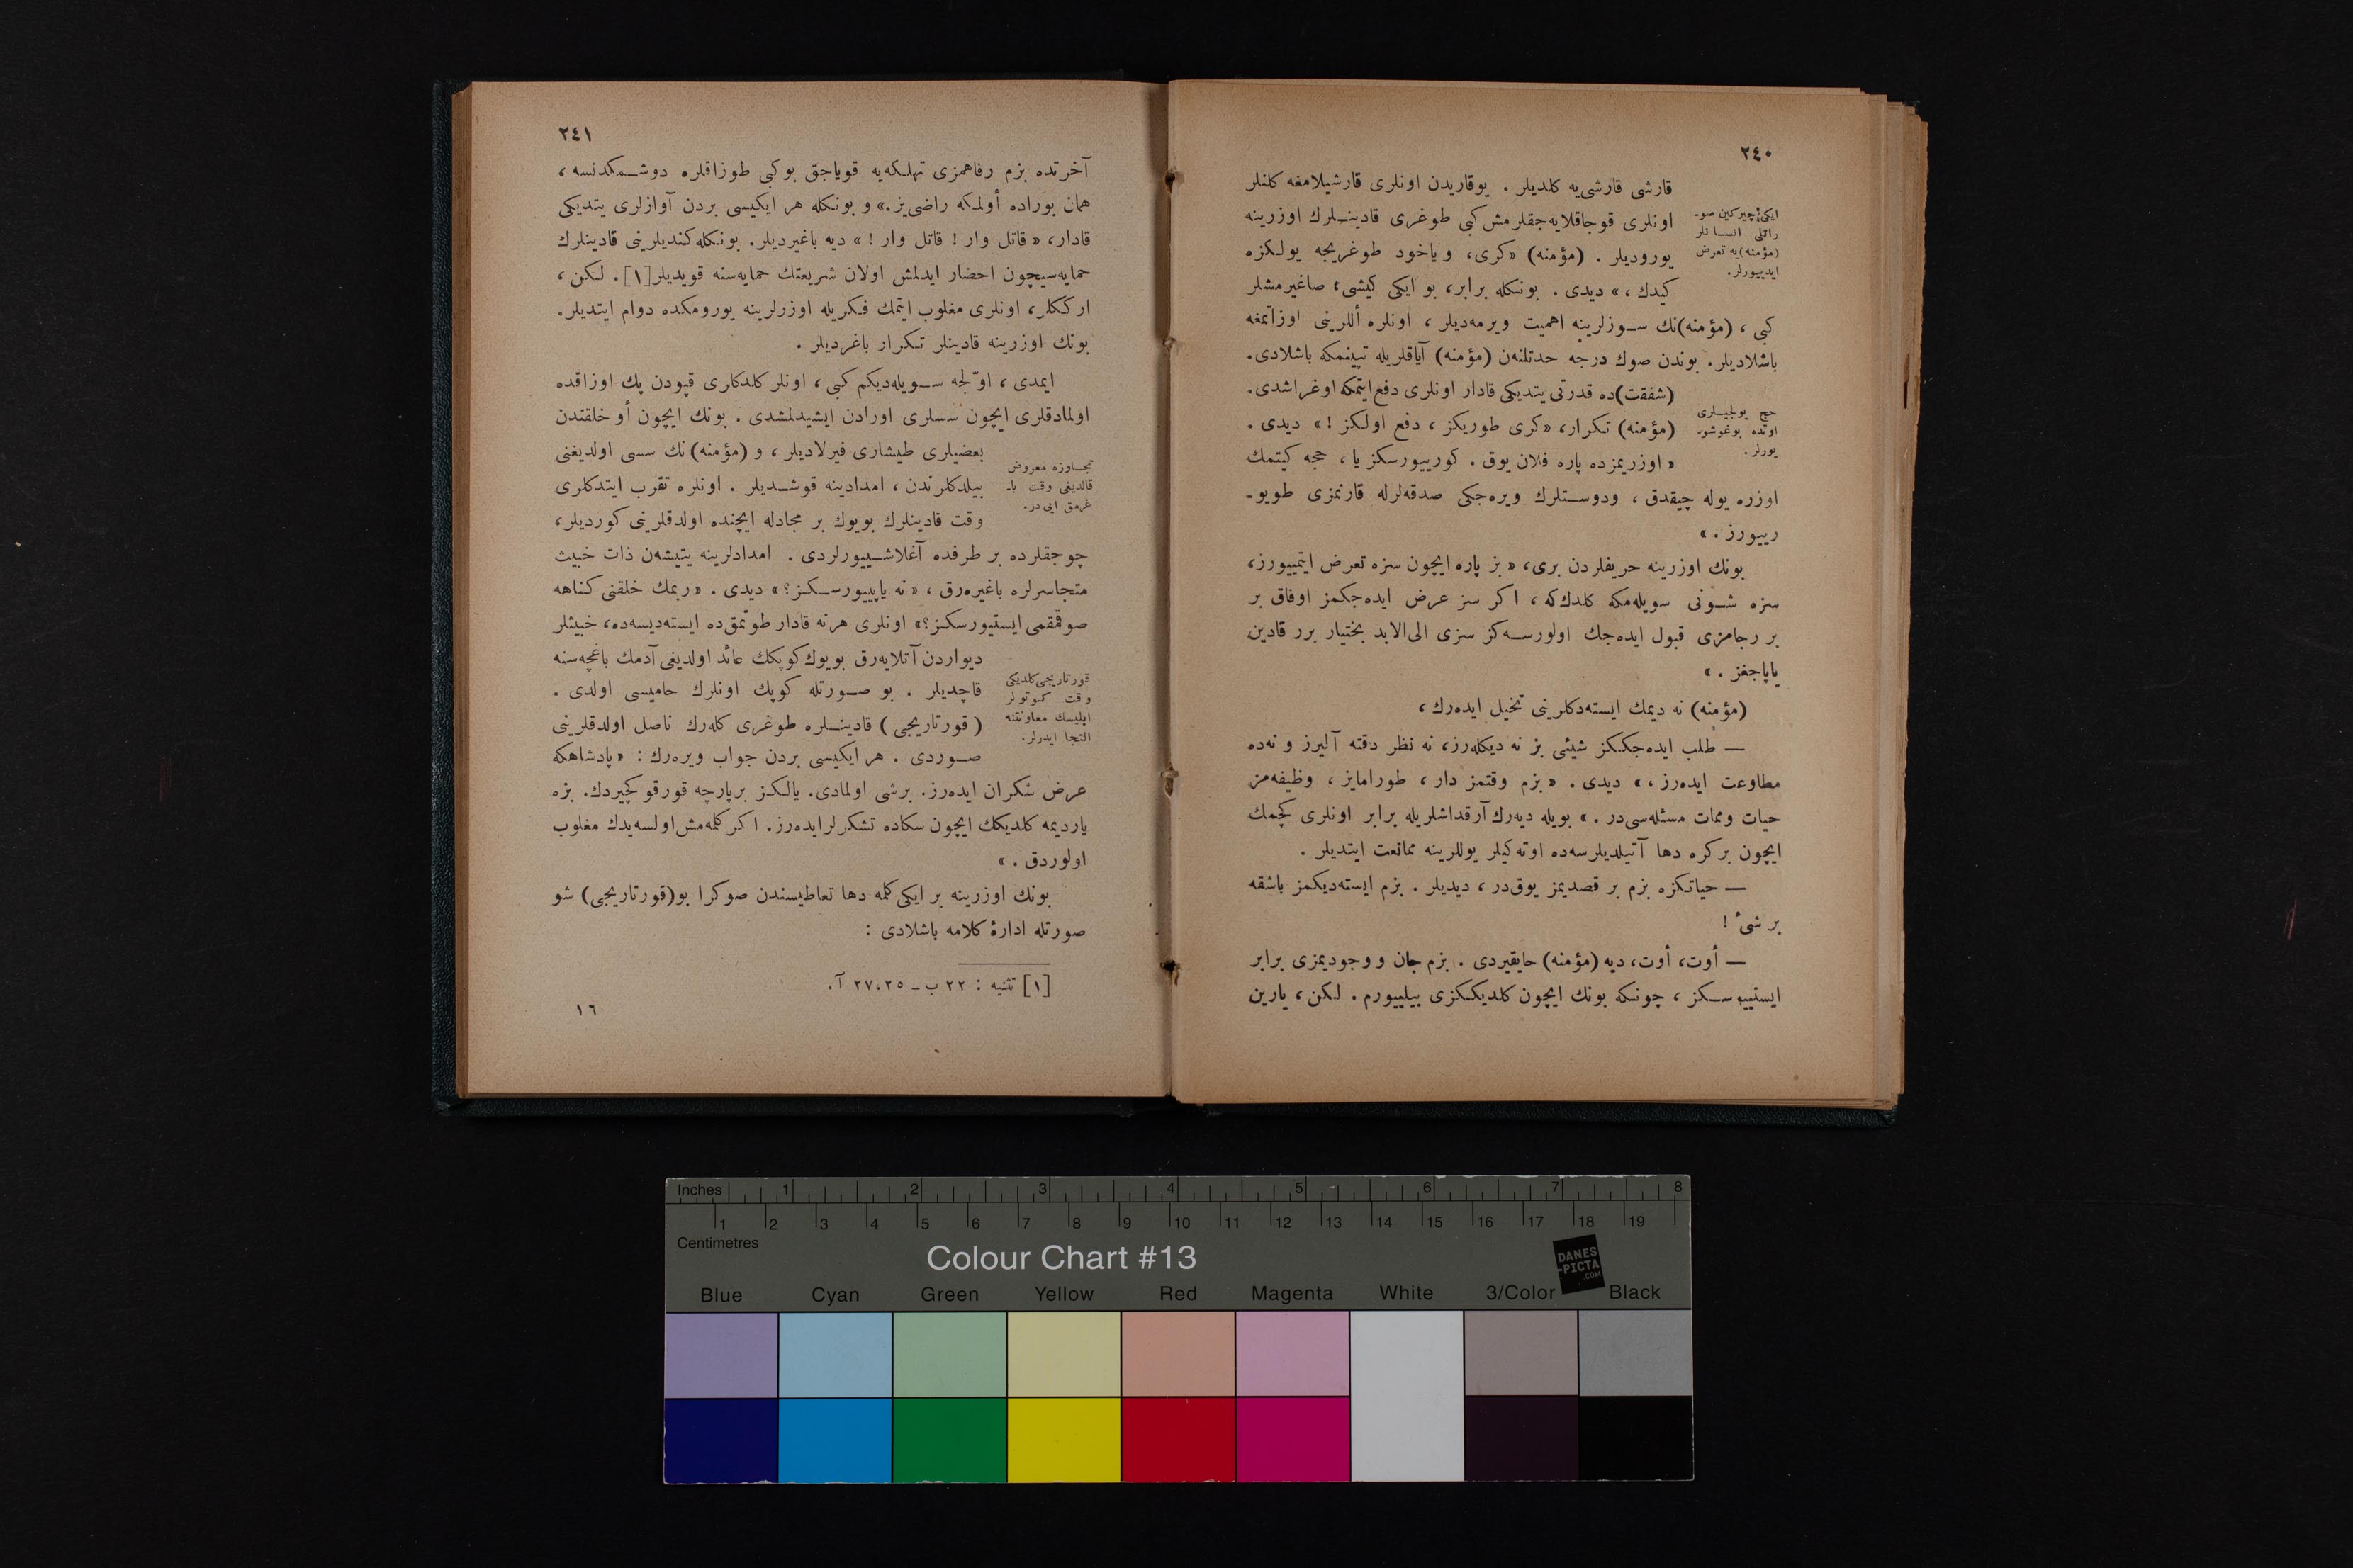 ٢٤٠
قارشی قارشی‌یه كلدیلر . یوقاریدن اونلری قارشیلامغه كلنلر
اونلری قوجاقلایه‌جقلرمش كبی طوغری قادینلرك اوزرینه
یورودیلر . (مؤمنه) «كری، ویاخود طوغریجه یولكزه
كیدك ،» دیدی . بونكله برابر، بو ایكی كیشی ؛ صاغیرمشلر
كبی ، (مؤمنه)نك سوزلرینه اهمیت ویرمه‌دیلر ، اونلره أللرینی اوزاتمغه
باشلادیلر. بوندن صوك درجه حدتلنه‌ن (مؤمنه) آیاقلریله تپینمكه باشلادی.
(شفقت)ده قدرتی یتدیكی قادار اونلری دفع ایتمكه اوغراشدی.
(مؤمنه) تكرار، «كری طوریكز ، دفع اولكز !» دیدی .
« اوزریمزده پاره فلان یوق . كورییورسكز یا ، حجه كیتمك
اوزره یوله چیقدق ، ودوستلرك ویره‌جكی صدقه‌لرله قارنمزی طویو-
رییورز . »
بونك اوزرینه حریفلردن بری، « بز پاره ایچون سزه تعرض ایتمییورز،
سزه شونی سویله‌مكه كلدك‌كه ، اكر سز عرض ایده‌جكمز اوفاق بر
بر رجامزی قبول ایده‌جك اولورسه‌كز سزی الی‌الابد بختیار برر قادین
یاپاجغز . »
(مؤمنه) نه دیمك ایسته‌دكلرینی تخیل ایده‌رك ،
— طلب ایده‌جككز شیئی بز نه دیكله‌رز، نه نظر دقته آلیرز و نه‌ده
مطاوعت ایده‌رز ،» دیدی . « بزم وقتمز دار ، طورامایز ، وظیفه‌مز
حیات وممات مسئله‌سی‌در . » بویله دیه‌رك آرقداشلریله برابر اونلری كچمك
ایچون بركره دها آتیلدیلرسه‌ده اوته‌كیلر یوللرینه ممانعت ایتدیلر .
— حیاتكزه بزم بر قصدیمز یوق‌در ، دیدیلر . بزم ایسته‌دیكمز باشقه
بر شیٔ !
— أوت، أوت، دیه (مؤمنه) حایقیردی . بزم جان و وجودیمزی برابر
ایستییوسكز ، چونكه بونك ایچون كلدیككزی بیلییورم . لكن ، یارین
ایكی چیركین صو-
راتلی انسانلر
(مؤمنه)یه تعرض
ایدییورلر.
حج یولجیلری
اوتده بوغوشو-
یورلر .
٢٤١
آخرتده بزم رفاهمزی تهلكه‌یه قویاجق بوكبی طوزاقلره دوشمكدنسه ،
همان بوراده أولمكه راضی‌یز.» و بونكله هر ایكیسی بردن آوازلری یتدیكی
قادار، « قاتل وار ! قاتل وار !» دیه باغیردیلر. بونكله كندیلرینی قادینلرك
حمایه‌سیچون احضار ایدلمش اولان شریعتك حمایه‌سنه قویدیلر[١]. لكن ،
ارككلر، اونلری مغلوب ایتمك فكریله اوزرلرینه یورومكده دوام ایتدیلر.
بونك اوزرینه قادینلر تكرار باغردیلر .
ایمدی ، اوّلجه سویله‌دیكم كبی ، اونلر كلدكلری قپودن پك اوزاقده
اولمادقلری ایچون سسلری اورادن ایشیدلمشدی . بونك ایچون أو خلقندن
بعضیلری طیشاری فیرلادیلر ، و (مؤمنه)نك سسی اولدیغنی
بیلدكلرندن ، امدادینه قوشدیلر . اونلره تقرب ایتدكلری
وقت قادینلرك بویوك بر مجادله ایچنده اولدقلرینی كوردیلر،
چوجقلرده بر طرفده آغلاشییورلردی . امدادلرینه یتیشه‌ن ذات خبیث
متجاسرلره باغیره‌رق ، « نه یاپییورسكز؟» دیدی . « ربمك خلقنی كناهه
صوقمقمی ایستیورسكز؟» اونلری هرنه قادار طوتمق‌ده ایسته‌دیسه‌ده، خبیثلر
دیواردن آتلایه‌رق بویوك كوپكك عائد اولدیغی آدمك باغچه‌سنه
قاچدیلر . بو صورتله كوپك اونلرك حامیسی اولدی .
( قورتاریجی ) قادینلره طوغری كله‌رك ناصل اولدقلرینی
صوردی . هر ایكیسی بردن جواب ویره‌رك : « پادشاهكه
عرض شكران ایده‌رز. برشی اولمادی. یالكز برپارچه قورقو كچیردك. بزه
یاردیمه كلدیكك ایچون سكاده تشكرلر ایده‌رز. اكر كلمه‌مش اولسه‌یدك مغلوب
اولوردق . »
بونك اوزرینه بر ایكی كلمه دها تعاطیسندن صوكرا بو(قورتاریجی) شو
صورتله ادارهٔ كلامه باشلادی :
تجاوزه معروض
قالدیغی وقت با-
غرمق ایی‌در.
قورتاریجی كلدیكی
وقت كوتولر
ابلیسك معاونتنه
التجا ایدرلر.
[١] تثنیه : ٢٢ ب ـ ٢٧،٢٥ آ.
١٦
Inches 1 2 3 4 5 6 7 8
1 2 3 4 5 6 7 8 9 10 11 12 13 14 15 16 17 18 19
Centimetres
Colour Chart #13
DANES
-PICTA
.COM
Blue Cyan Green Yellow Red Magenta White 3/Color Black